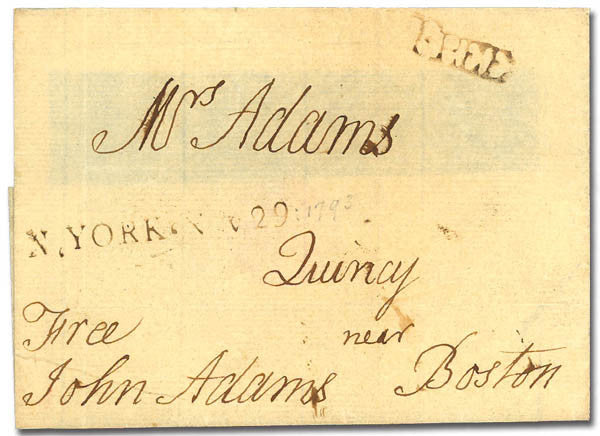 FREE
Mrs Adams
N.YORK. 29. 1793
Quincy
Free near
John Adams Boston